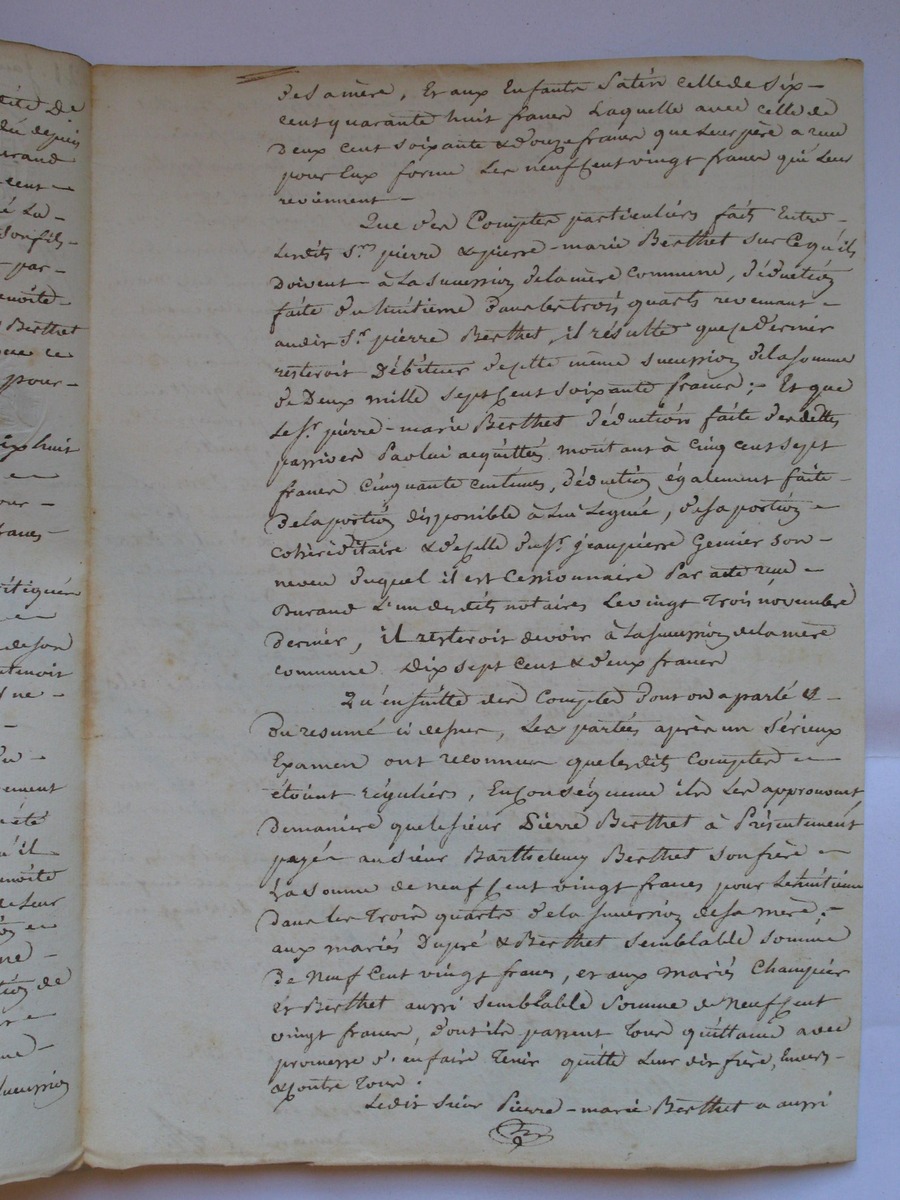 dité De
dû depuis
urand
cent -
é La -
son fils -
par -
enoîte
Berthet
que ce
pour -
dix huit
our -
francs -
ritiguée
de son
tenoit
ne -
ement
été
'il
enoîte
de Leur
ne -
tion de
succession
de sa mère, Et aux Enfants Satin celle de six -
cent quarante huit francs Laquelle avec celle de
Deux cent soixante & douze francs que Leur père a reçu
pour Eux forme Les neuf Cent vingt francs qui Leur
reviennent -
Que des Comptes particuliers faits Entre -
Lesdits Srs pierre & pierre-marie Berthet sur Ce qu'ils
Doivent à La Succession de la mère Commune, déduction
faite du huitième dans les trois quarts revenant -
audit Sr. pierre Berthet, il résulte que ce dernier
resteroit Débiteur de cette même succession de la somme
de Deux mille sept Cent soixante francs; Et que
Le Sr. pierre-marie Berthet déduction faite des dettes
passives Par lui acquittées montant à Cinq cent sept
francs Cinquante Centimes, déduction également faite -
De la portion disponible à Lui Leguée, de sa portion -
cohéréditaire & de celle du Sr. jean pierre Genier son -
neveu duquel il est Cessionnaire Par acte reçu -
Durand L'un desdits notaires Le vingt Trois novembre
Dernier, il resteroit devoir à La Succession de la mère
commune Dix sept Cent & deux francs
Qu'en suitte des Comptes dont on a parlé & -
Du resumé ci dessus, Les parties après un Sérieux
Examen ont reconnu que lesdits Comptes -
étoient réguliers, En Conséquence ils Les approuvent
De maniere que le sieur Pierre Berthet à Présentement
payé au sieur Barthelemy Berthet son frère -
La somme de neuf Cent vingt francs pour Le huitieme
Dans les Trois quarts de la succession de sa mère; -
aux mariés Dupré & Berthet semblable somme
De neuf Cent vingt francs, et aux mariés Champier
Et Berthet aussi semblable Somme de neuf Cent
vingt francs, dont ils passent Tous quittance avec
promesse d'en faire Tenir quitte Leur dit frère, Envers -
& Contre Tous.
Ledit sieur Pierre-marie Berthet a aussi